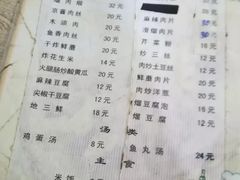 京酱肉丝 32元
木须肉 20元
鱼香肉丝 20元
干炸鲜蘑 30元
炸花生米 20元
火腿肠炒酸黄瓜 14元
麻辣豆腐 20元
尖椒干豆腐 12元
地三鲜 12元
18元
汤
鸡蛋汤 8元
主
米饭
麻辣肉片
滑熘肉片
芹菜粉 16元
炒三丝 14元
肉炒土豆丝 12元
鲜蘑肉片 20元
肉炒洋葱 20元
熘豆腐泡 18元
熘豆腐 12元
类
鱼丸汤 24元
食